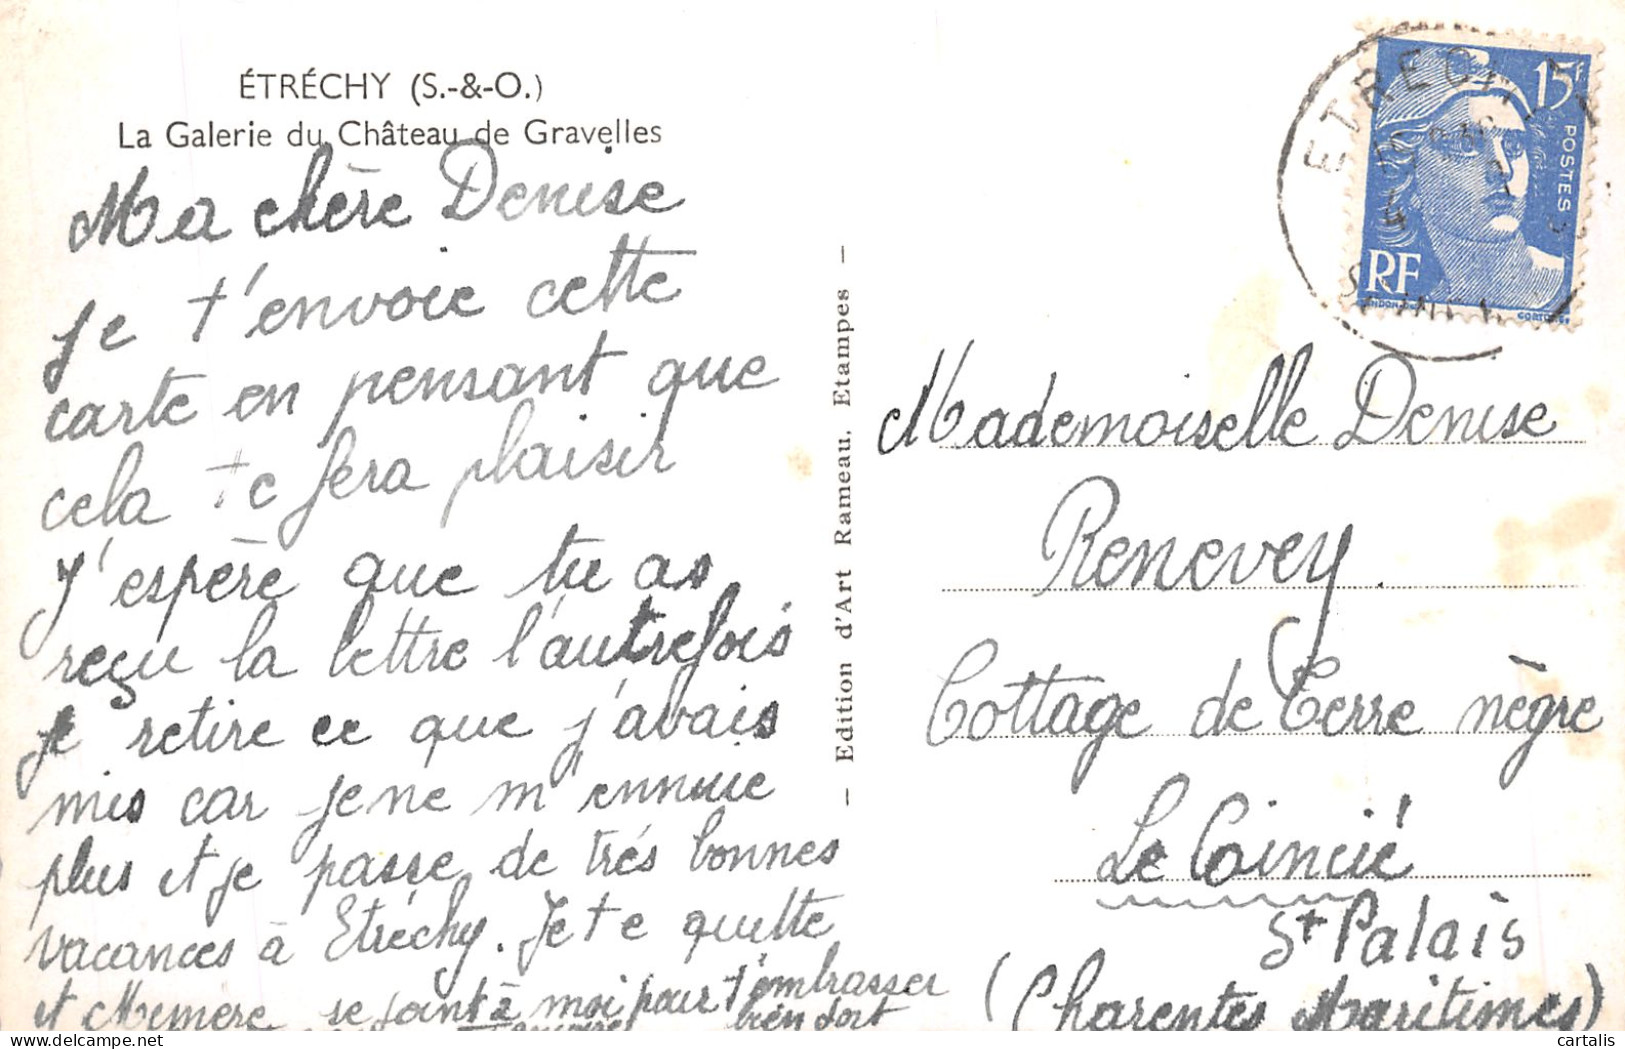 ÉTRÉCHY (S.-&-O.)
La Galerie du Château de Gravelles
Ma chère Denise
je t'envoie cette
carte en pensant que
cela te fera plaisir
J'espère que tu as
reçu la lettre l'autrefois
je retire ce que j'avais
mis car je ne m'ennuie
plus et je passe de très bonnes
vacances à Etréchy. Je te quitte
et Mémère se joint à moi pour t'embrasser
bien fort
- Edition d'Art Rameau. Etampes -
ETRECHY
15F
POSTES
RF
Mademoiselle Denise
Renevey.
Cottage de Terre nègre
Le
St Palais
(Charentes Maritimes)
cartalis